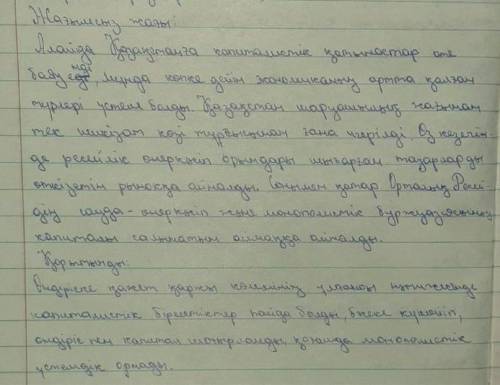 Жағымсыз жағы:
Алайда Қазақстанға капиталистік қатынастар өте
баяу енді, мұнда көпке дейін экономиканың артта қалған
түрлері үстем болды. Қазақстан шаруашылық жағынан
тек шикізат көзі тұрғысынан ғана игерілді. Өз кезегін-
де ресейлік өнеркәсіп орындары шығарған тауарларды
өткізетін рынокқа айналды. Сонымен қатар Орталық Ресей-
дің сауда-өнеркәсіп және монополистік буржуазиясының
капиталы салынатын аймаққа айналды.
Қорытынды:
Өндіріске қажет қаржы көлемінің ұлғаюы нәтижесінде
капиталистік бірлестіктер пайда болды, бәсеке күшейіп,
өндіріс пен капитал шоғырланды, қоғамда монополистік
үстемдік орнады.